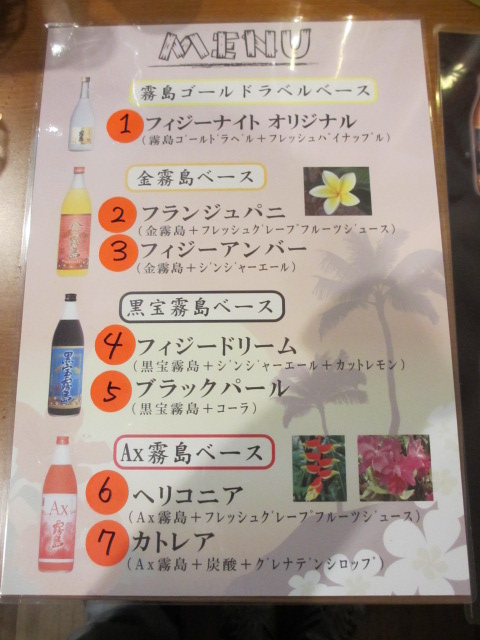 MENU
霧島ゴールドラベルベース
1 フィジーナイト オリジナル
(霧島ゴールドラベル＋フレッシュパイナップル)
金霧島ベース
2 フランジュパニ
(金霧島＋フレッシュグレープフルーツジュース)
3 フィジーアンバー
(金霧島＋ジンジャーエール)
黒宝霧島ベース
4 フィジードリーム
(黒宝霧島＋ジンジャーエール＋カットレモン)
5 ブラックパール
(黒宝霧島＋コーラ)
Ax霧島ベース
6 ヘリコニア
(Ax霧島＋フレッシュグレープフルーツジュース)
7 カトレア
(Ax霧島＋炭酸＋グレナデンシロップ)
金霧島
黒宝霧島
Ax
霧島